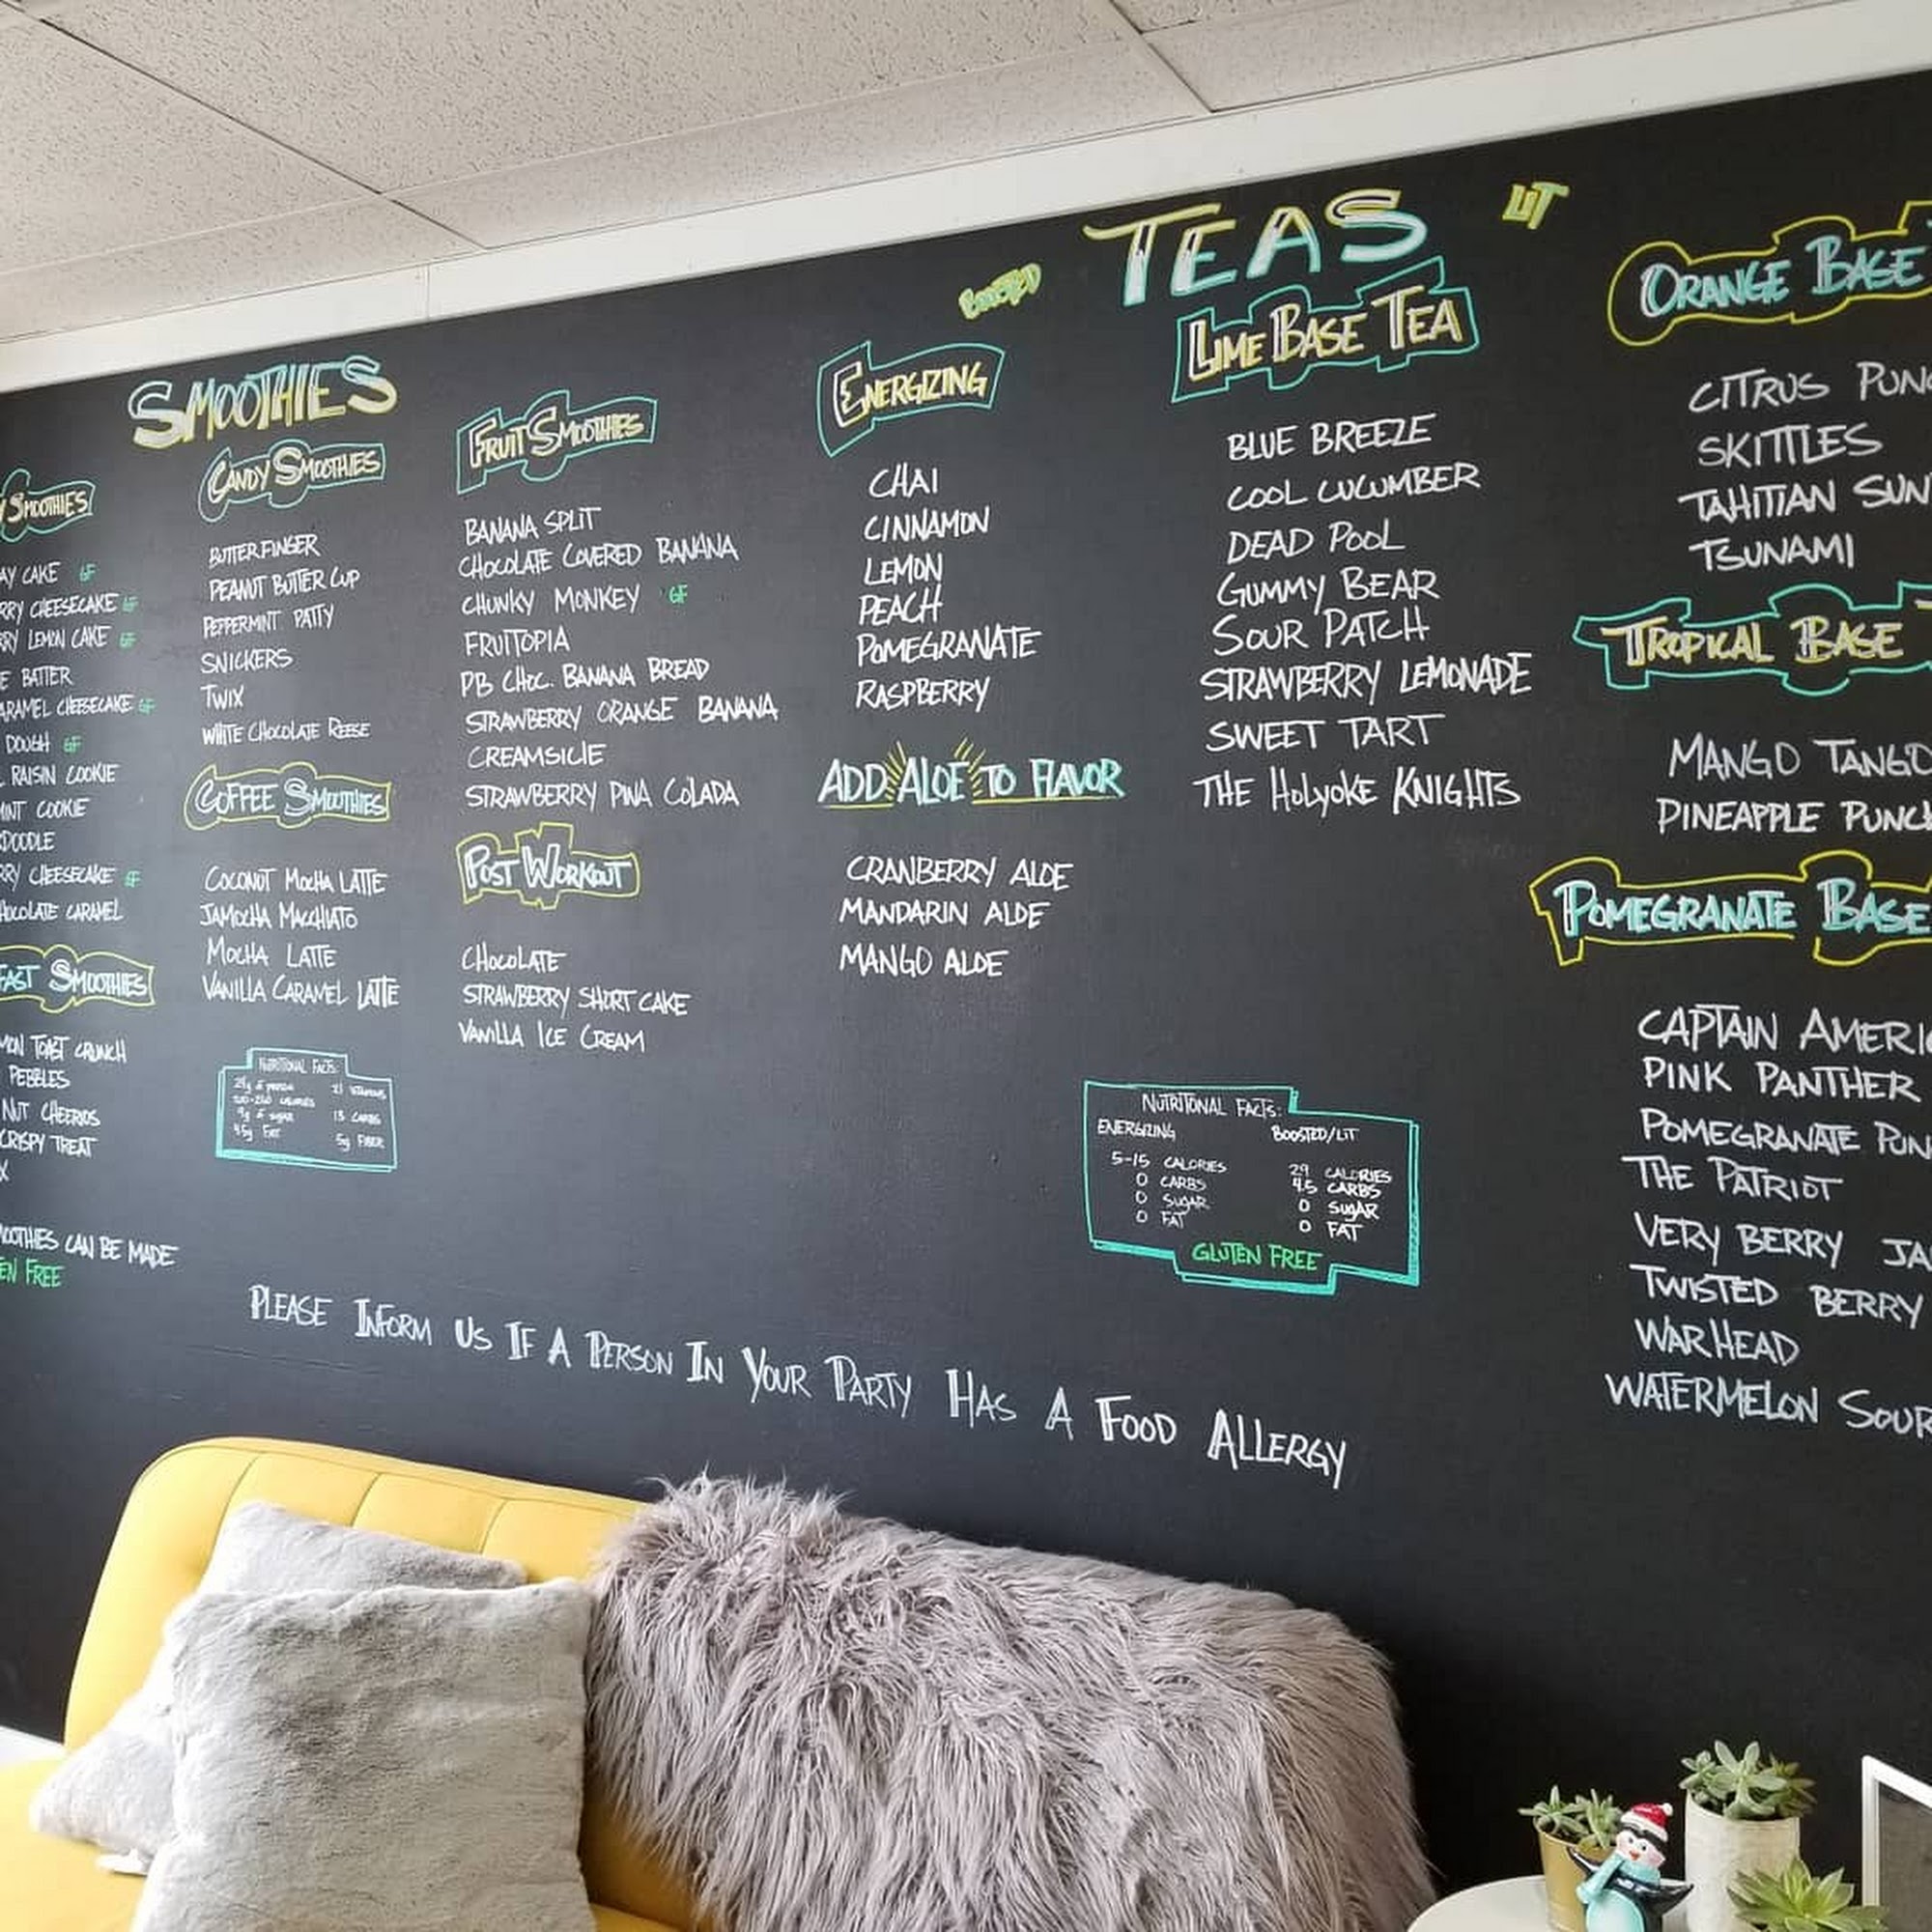 SMOOTHIES
SMOOTHIES
CAKE GF
CHEESECAKE GF
LEMON CAKE GF
BATTER
CHEESECAKE GF
DOUGH GF
RAISIN COOKIE
COOKIE
CHEESECAKE GF
CARAMEL
SMOOTHIES
TOAST CRUNCH
PEBBLES
NUT CHEERIOS
CRISPY TREAT
CAN BE MADE
FREE
CANDY SMOOTHIES
BUTTERFINGER
PEANUT BUTTER CUP
PEPPERMINT PATTY
SNICKERS
TWIX
WHITE CHOCOLATE REESE
COFFEE SMOOTHIES
COCONUT MOCHA LATTE
JAMOCHA MACCHIATO
MOCHA LATTE
VANILLA CARAMEL LATTE
NUTRITIONAL FACTS:
21 VITAMINS
9g of SUGAR 13 CARBS
FAT 5g FIBER
FRUIT SMOOTHIES
BANANA SPLIT
CHOCOLATE COVERED BANANA
CHUNKY MONKEY GF
FRUITOPIA
PB CHOC. BANANA BREAD
STRAWBERRY ORANGE BANANA
CREAMSICLE
STRAWBERRY PINA COLADA
POST WORKOUT
CHOCOLATE
STRAWBERRY SHORTCAKE
VANILLA ICE CREAM
TEAS
BOOSTED
LIT
ENERGIZING
CHAI
CINNAMON
LEMON
PEACH
POMEGRANATE
RASPBERRY
ADD ALOE TO FLAVOR
CRANBERRY ALOE
MANDARIN ALOE
MANGO ALOE
LIME BASE TEA
BLUE BREEZE
COOL CUCUMBER
DEAD POOL
GUMMY BEAR
SOUR PATCH
STRAWBERRY LEMONADE
SWEET TART
THE HOLYOKE KNIGHTS
NUTRITIONAL FACTS:
ENERGIZING BOOSTED/LIT
5-15 CALORIES 29 CALORIES
0 CARBS 4.5 CARBS
0 SUGAR 0 SUGAR
0 FAT 0 FAT
GLUTEN FREE
ORANGE BASE
CITRUS
SKITTLES
TAHITIAN
TSUNAMI
TROPICAL BASE
MANGO TANGO
PINEAPPLE
POMEGRANATE BASE
CAPTAIN
PINK PANTHER
POMEGRANATE
THE PATRIOT
VERY BERRY
TWISTED BERRY
WARHEAD
WATERMELON SOUR
PLEASE INFORM US IF A PERSON IN YOUR PARTY HAS A FOOD ALLERGY